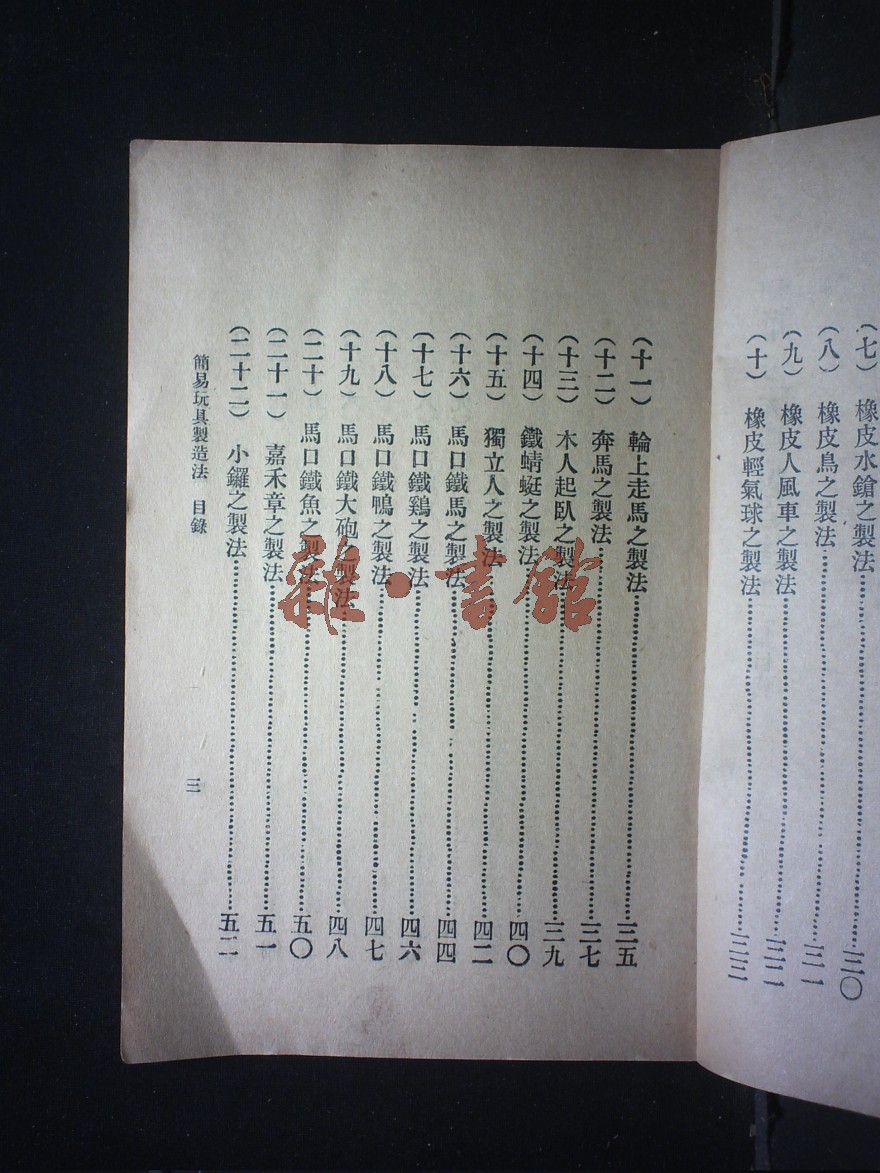 (七) 橡皮水鎗之製法……三〇
(八) 橡皮鳥之製法……三一
(九) 橡皮人風車之製法……三二
(十) 橡皮輕氣球之製法……三三
(十一) 輪上走馬之製法……三五
(十二) 奔馬之製法……三七
(十三) 木人起臥之製法……三九
(十四) 鐵蜻蜓之製法……四〇
(十五) 獨立人之製法……四二
(十六) 馬口鐵馬之製法……四四
(十七) 馬口鐵鷄之製法……四六
(十八) 馬口鐵鴨之製法……四七
(十九) 馬口鐵大砲之製法……四八
(二十) 馬口鐵魚之製法……五〇
(二十一) 嘉禾章之製法……五一
(二十二) 小鑼之製法……五二
簡易玩具製造法 目錄
三
雜·書館